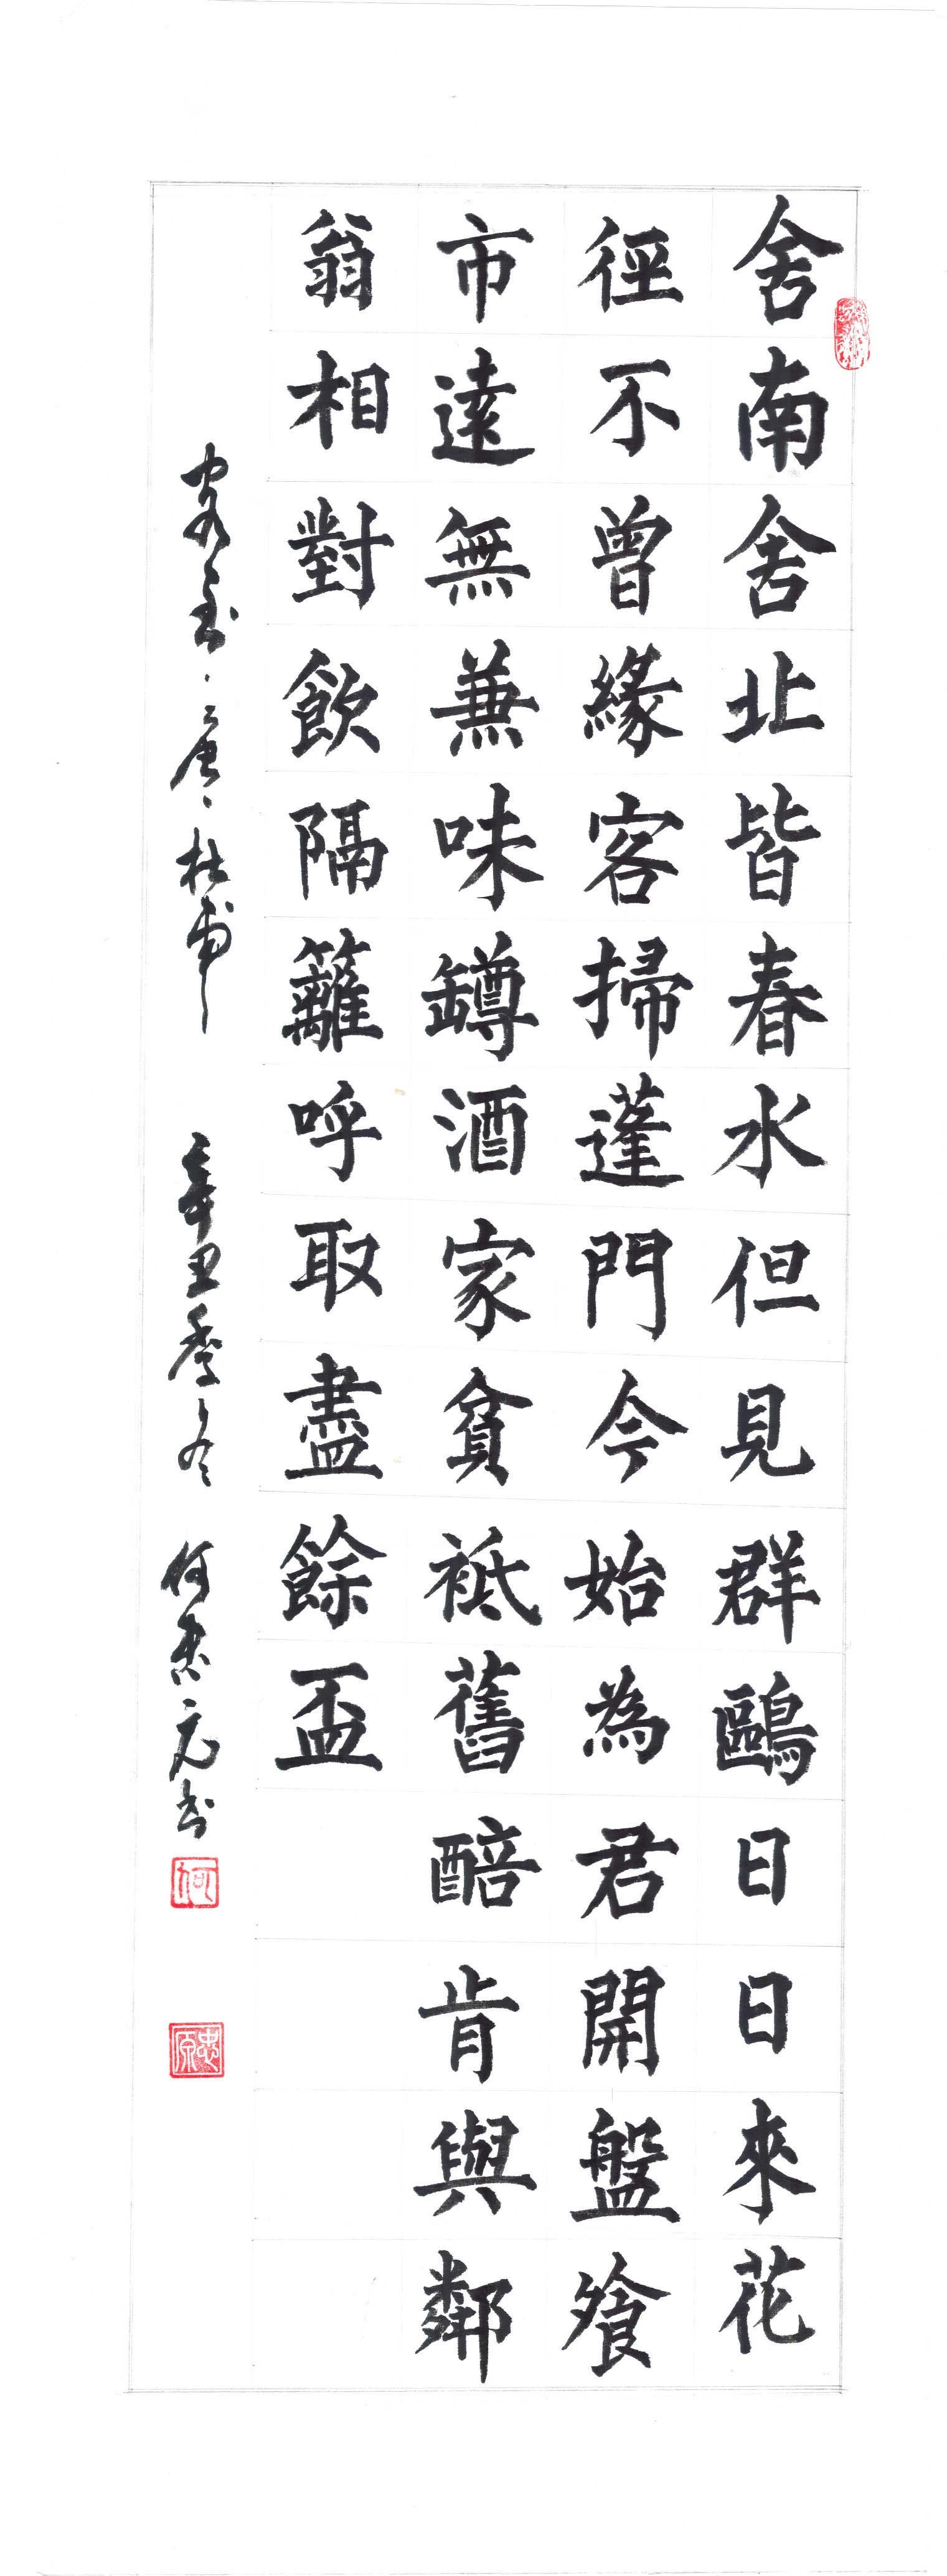 舍南舍北皆春水但見群鷗日日來花
徑不曾緣客掃蓬門今始為君開盤飧
市遠無兼味罇酒家貧衹舊醅肯與鄰
翁相對飲隔籬呼取盡餘盃
客至 唐 杜甫 辛丑季冬 何忠元书
何
忠原